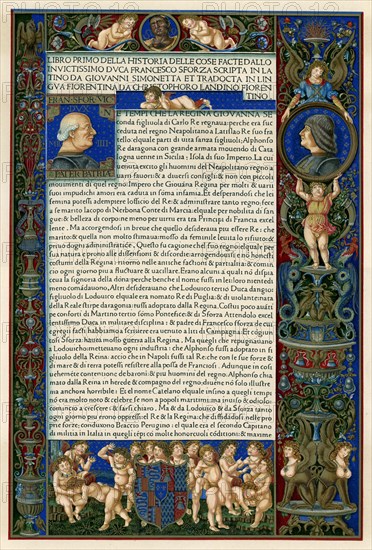 LIBRO PRIMO DELLA HISTORIA DELLE COSE FACTE DALLO
INVICTISSIMO DVCA FRANCESCO SFORZA SCRIPTA IN LA
TINO DA GIOVANNI SIMONETTA ET TRADOCTA IN LIN
GVA FIORENTINA DA CHRISTOPHORO LANDINO FIOREN
TINO.
FRAN·SFOR·VIC
PATER PATRIÆ
TEMPI CHE LA REGINA GIOVANNA SE
conda figliuola di Carlo Re regnaua: perche era suc
ceduta nel regno Neapolitano a Latislao Re suo fra
tello elquale parti di uita sanza figliuoli: Alphonso
Re daragona con grande armata mouendo di Cata
logna uenne in Sicilia: Isola di suo Imperio. La cui
uenuta excito gli huomini del Neapolitano regno a
uarii fauori: & a diuersi consigli: & non con piccoli
mouimenti di quel regno: Impero che Giouanna Regina per molti: & uarii
suoi impudichi amori era caduta in soma infamia: Et desperandosi che lei
femina potessi adempiere lofficio del Re: & administrare tanto regno: fece
a se marito Iacopo di Nerbona Conte di Marcia: elquale per nobilita di san
gue: & bellezza di corpo: ne meno per uirtu era tra Principi di Francia excel
lente. Ma accorgendosi in breue che quello desideraua piu essere Re:
che marito: & quella non molto stimaua: mosso da feminile leuita lo rifiuto: &
priuo dogni administratione. Questo fu cagione che il suo regno: elquale per
sua natura è prono alle dissensioni: & discordie: arrogendouisi e no honesti
costumi della Regina: ritorno nelle antiche factioni: & partialita: & comin
cio ogni giorno piu a fluctuare: & uacillare. Erano alcuni a quali nō dispia
ceua la signoria della dōna: perche benche il nome fussi in lei: loro niente
meno comādauano. Altri desiderauano che Lodouico tertio Duca dangio:
figliuolo di Lodouico: elquale era nomato Re di Puglia: & di uiolante nata
della Reale stirpe daragona: fussi adoptato dalla Regina. Costui poco auāti
ne conforti di Martino tertio sōmo Pontefice: & di Sforza Attendolo excel
lentissimo Duca in militare disciplina: & padre di Francesco sforza de cui
egregii facti habbiamo a scriuere era uenuto a liti di Campagna: Et cōgiuto
si Sforza: haueā mosso guerra alla Regina. Ma quegli che repugnauano
a Lodouico: hometteuano ogni industria: che Alphonso fussi adoptato in fi
gliuolo della Reina: accio che in Napoli fussi tal Re: che con le sue forze di
& di terra potessi resistere alla possa de Franciosi. Adunque in cosi
uehemēte contentione de baroni: & piu huomini del regno: Alphonso chia
mato dalla Reina in herede & compagno del regno: diuēne nō solo illustre
ma anchora horribile: Et el nome Catelano elquale insino a quegli tempi
nō era molto noto & celebre se non a popoli maritimi: ma inuiso & odioso:
comincio a crescere: & farsi chiaro. Ma & da Lodouico & da Sforza tanto
ogni giorno piu erono oppressi el Re & la Regina: che diffidandosi nelle pro
prie forze: conduxono Braccio Perugino: el quale era el secondo Capitano
di militia in Italia in quegli tēpi cō molte honoreuoli cōditioni: & maxime